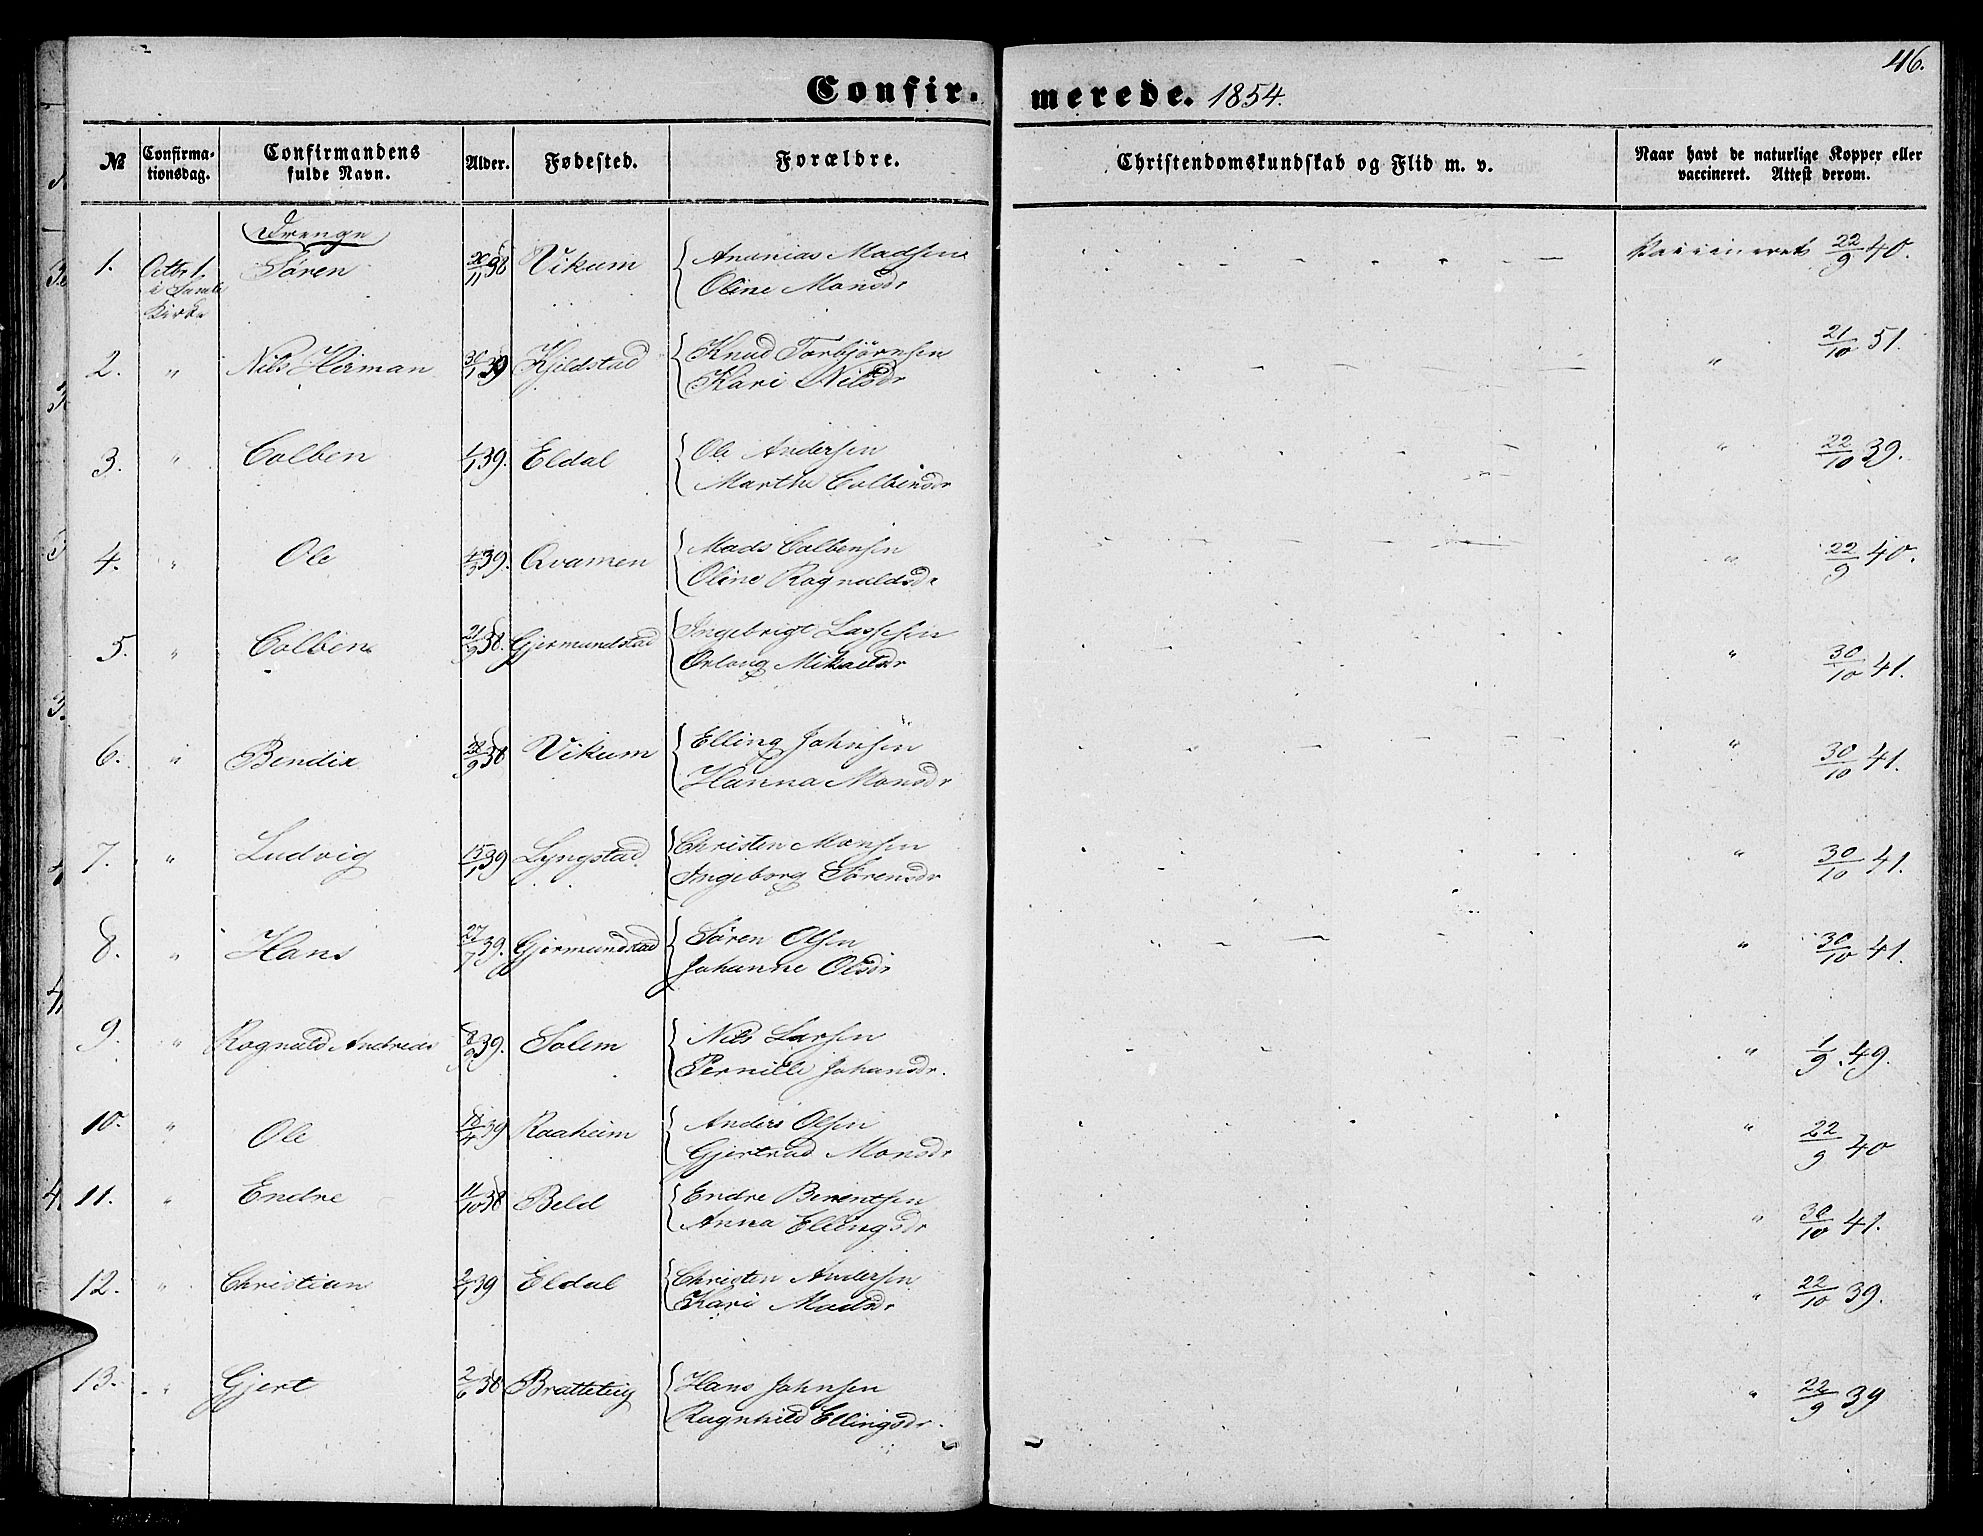 46.
Confir. merede. 1854.
№ Confirma- tionsdag. Confirmandens fulde Navn. Alder. Fødested. Forældre. Christendomskundskab og Flid m. v. Naar havt de naturlige Kopper eller vaccineret. Attest derom.
Drenge
1. Octbr 1. Søren 20/11 38 Vikum Ananias Madsen Vaccineret 22/9 40.
Kirke Oline Monsdr
2. " Nils Herman 30/1 39 Kjeldstad Knud Torbjørnsen " 21/10 51.
Kari Nilsdr
3. " Colben 1/1 39. Eldal Ole Andersen " 22/10 39.
Marthe Colbensdr
4. " Ole 39. Qvamen Mads Colbensen " 22/9 40.
Oline Ragnaldsdr
5. " Colben 21/9 38. Gjermundstad Ingebrigt Lassesen " 30/10 41.
Mikaelsdr
6. " Bendix 28/9 38 Vikum Elling Johnsen " 30/10 41.
Hanna Monsdr
7. " Ludvig 15/1 39 Lyngstad Christen Monsen " 30/10 41.
Ingeborg Sørensdr
8. " Hans 27/7 39. Gjermundstad Søren Olsen " 30/10 41.
Johanne Olsdr
9. " Ragnald Andreas 8/9 39. Solem Nils Larsen " 1/9 49.
Pernille Johansdr.
10. " Ole 18/4 39 Raaheim Anders Olsen " 22/9 40
Gjertrud Monsdr
11. " Endre 11/10 38 Beld Endre Berentsen " 30/10 41.
Anna Ellingsdr
12. " Christian 2/1 39 Eldal Christen Andersen " 22/10 39.
Kari Madsdr
13. " Gjert 2/6 38 Bratteteig Hans Johnsen " 22/9 39
Ragnhild Ellingsdr.